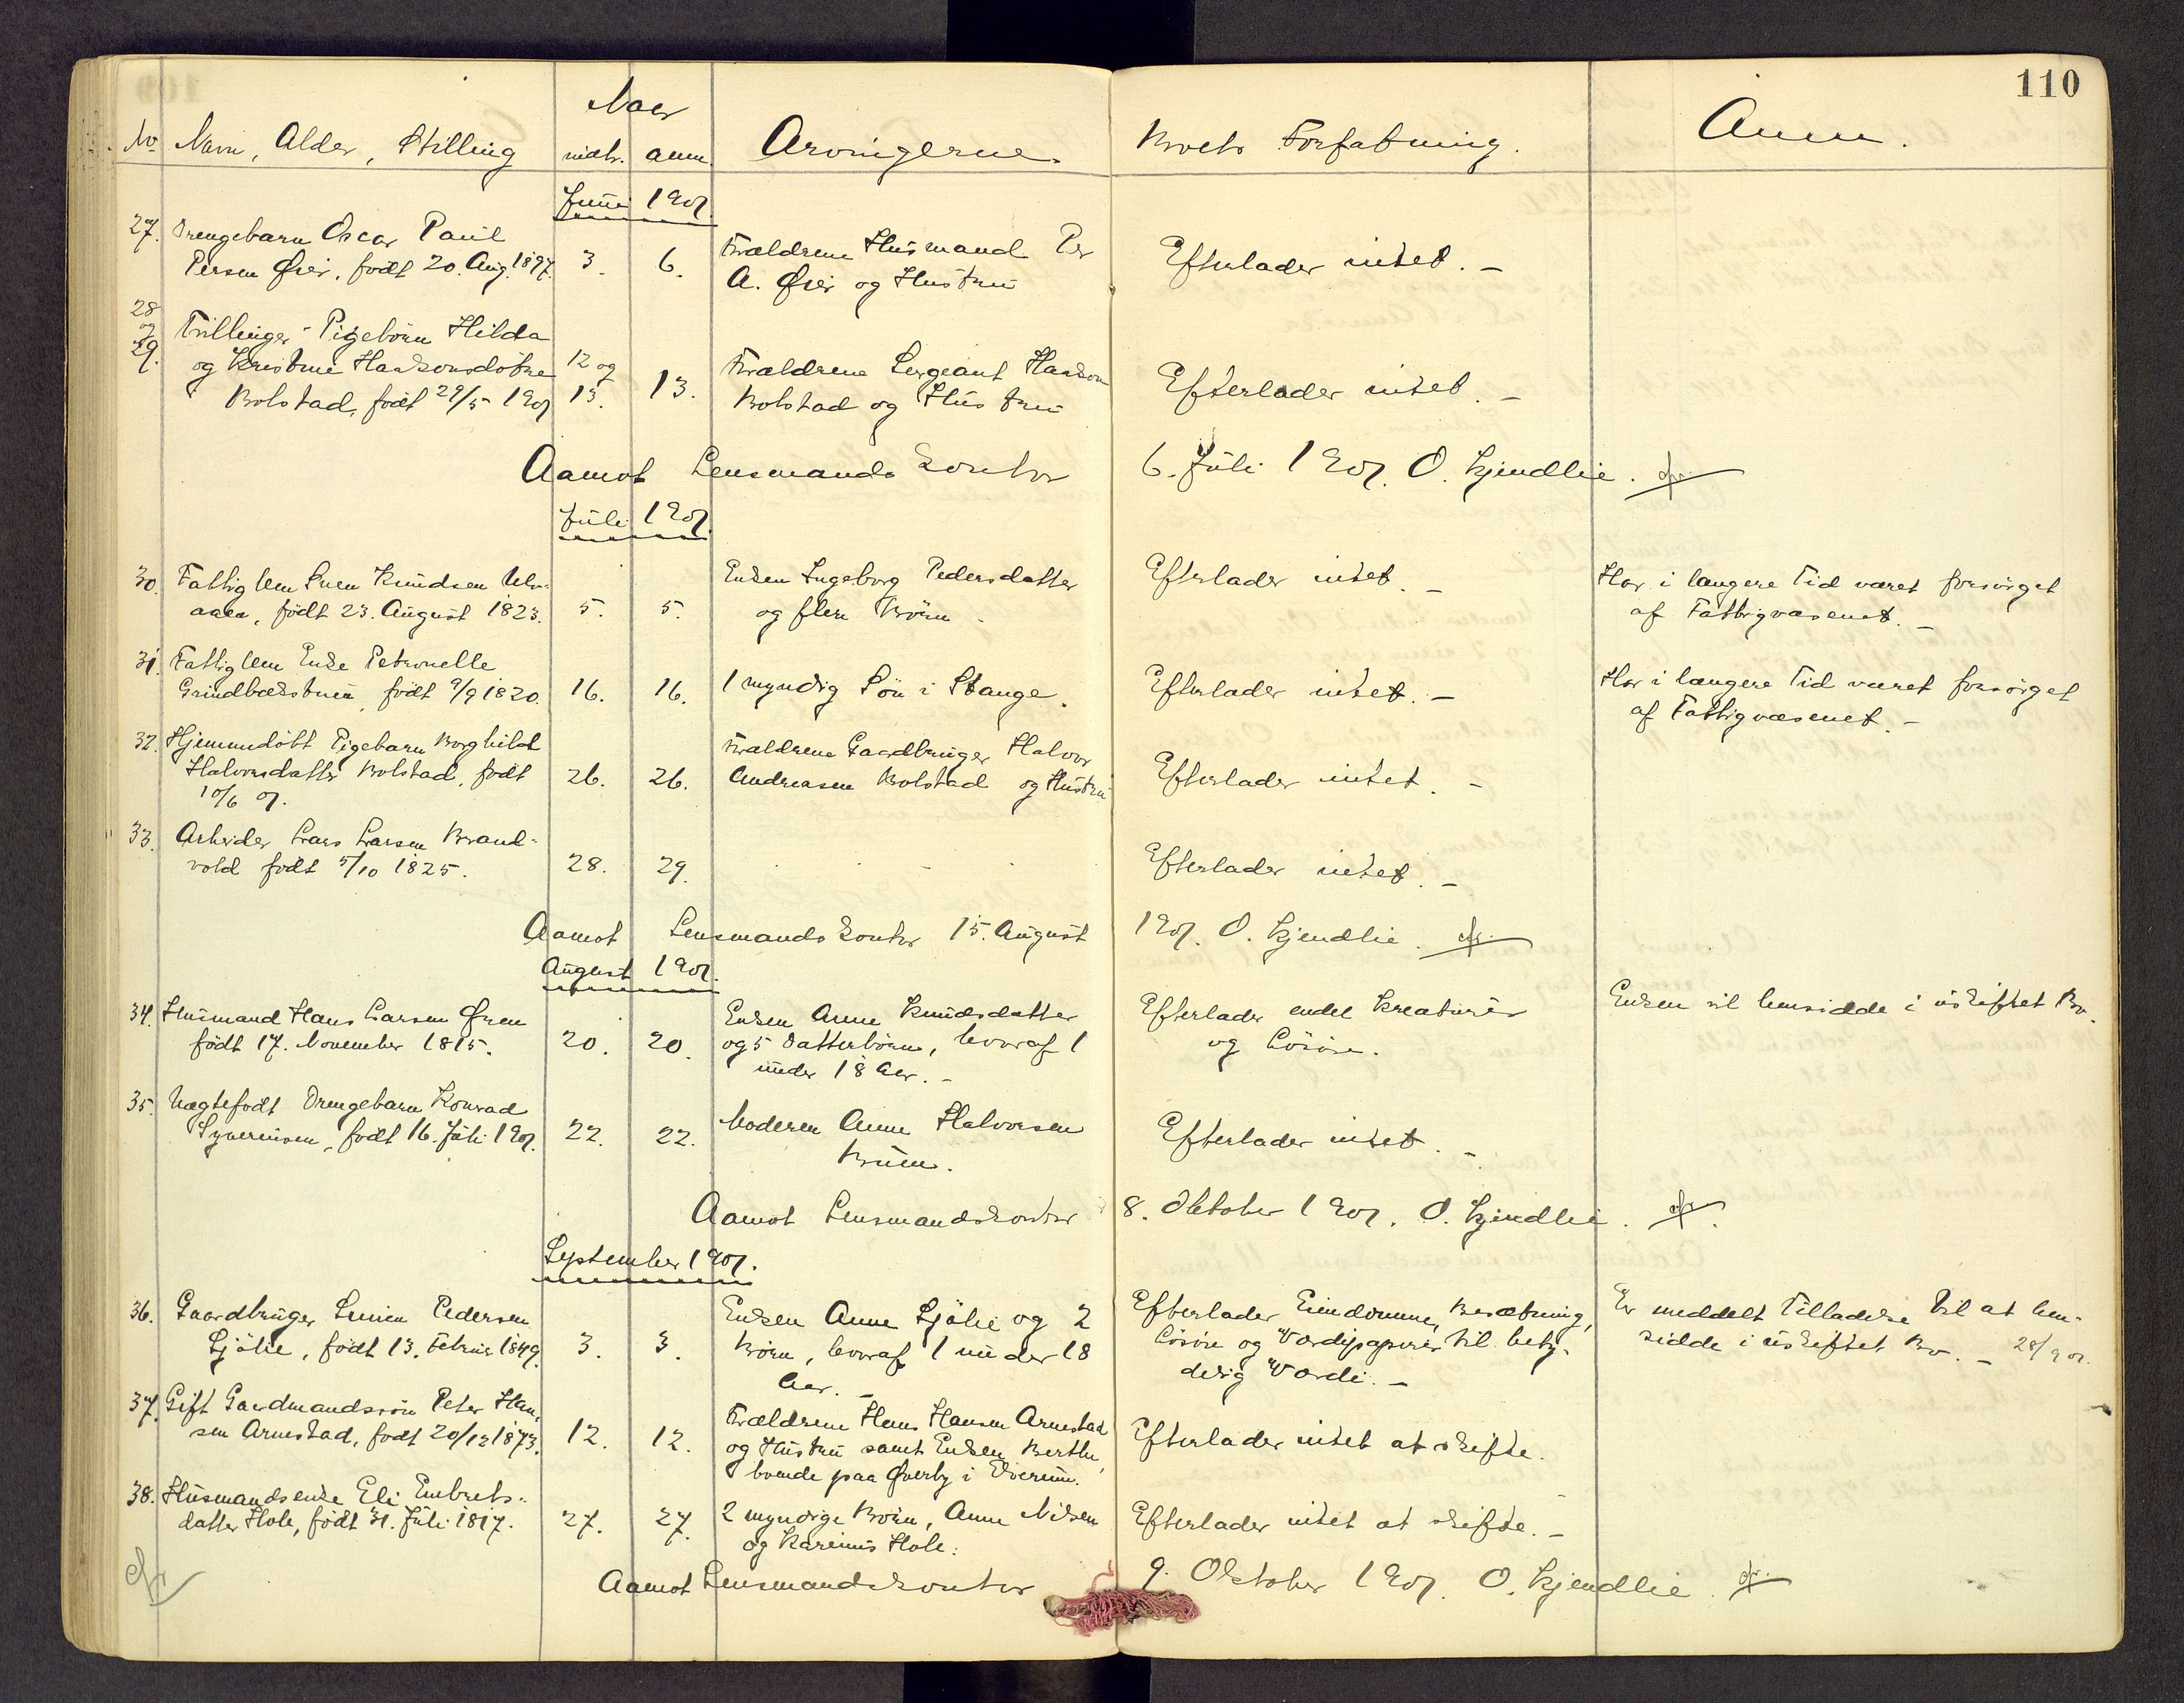 110
No Navn, Alder, Stilling
Naar
indtr. anm.
Arvingerne.
Boets Forfatning.
Anm.
Juni 1901.
27. Drengebarn Oscar Paul
Persen Øier, født 20. Aug. 1897. 3. 6.
Forældrene Husmand Per
A. Øier og Hustru
Efterlader intet. -
28
og
29.
Tvillinger - Pigebørn Hilda
og Kristine Haakonsdøtre
Bolstad, født 29/5 1901
12 og
13.
13.
Forældrene Sergeant Haakon
Bolstad og Hustru
Efterlader intet. -
Aamot Lensmandskontor 6. Juli 1901. O. Kjendlie.
Juli 1901.
30. Fattiglem Sven Knudsen Ulv-
aaen, født 23. August 1823. 5. 5.
Enken Ingeborg Pedersdatter
og flere Børn
Efterlader intet. -
Har i længere Tid været forsørget
af Fattigvæsenet. -
31. Fattiglem Enke Petronelle
Grindbakstuen, født 9/9 1820. 16. 16.
1 myndig Søn i Stange.
Efterlader intet. -
Har i længere Tid været forsørget
af Fattigvæsenet. -
32. Hjemmedøbt Pigebarn Borghild
Halvorsdatter Bolstad, født
10/6 01.
26. 26.
Forældrene Gaardbruger Halvor
Andreasen Bolstad og Hustru
Efterlader intet. -
33. Arbeider Lars Larsen Brand-
vold født 5/10 1825. 28. 29.
-
Efterlader intet. -
Aamot Lensmandskontor 15. August 1901. O. Kjendlie.
August 1901.
34. Husmand Hans Larsen Øren
født 17. November 1815. 20. 20.
Enken Anne Knudsdatter
og 5 Datterbørn, hvoraf 1
under 18 Aar. -
Efterlader endel Kreaturer
og Løsøre.
Enken vil hensidde i uskiftet Bo.
35. Uægtefødt Drengebarn Konrad
Syverinsen, født 16. Juli 1901. 22. 22.
Moderen Anne Halvorsen
Bruen.
Efterlader intet. -
Aamot Lensmandskontor 8. Oktober 1901. O. Kjendlie.
September 1901.
36. Gaardbruger Simen Pedersen
Sjølie, født 13. Februar 1849. 3. 3.
Enken Anne Sjølie og 2
Børn, hvoraf 1 under 18
Aar. -
Efterlader Eiendomme, Besætning,
Løsøre og Værdipapirer til bety-
delig Værdi. -
Er meddelt Tilladelse til at hen-
sidde i uskiftet Bo. - 28/9 01.
37. Gift Gaardmandssøn Peter Han-
sen Arnestad, født 20/12 1873. 12. 12.
Forældrene Hans Hansen Arnestad
og Hustru samt Enken Berthe,
boende paa Øverby i Elverum.
Efterlader intet at skifte.
38. Husmandsenke Eli Embrets-
datter Hole, født 31. Juli 1817. 27. 27.
2 myndige Børn, Anne Nilsen
og Karinus Hole.
Efterlader intet at skifte. -
Aamot Lensmandskontor 9. Oktober 1901. O. Kjendlie.